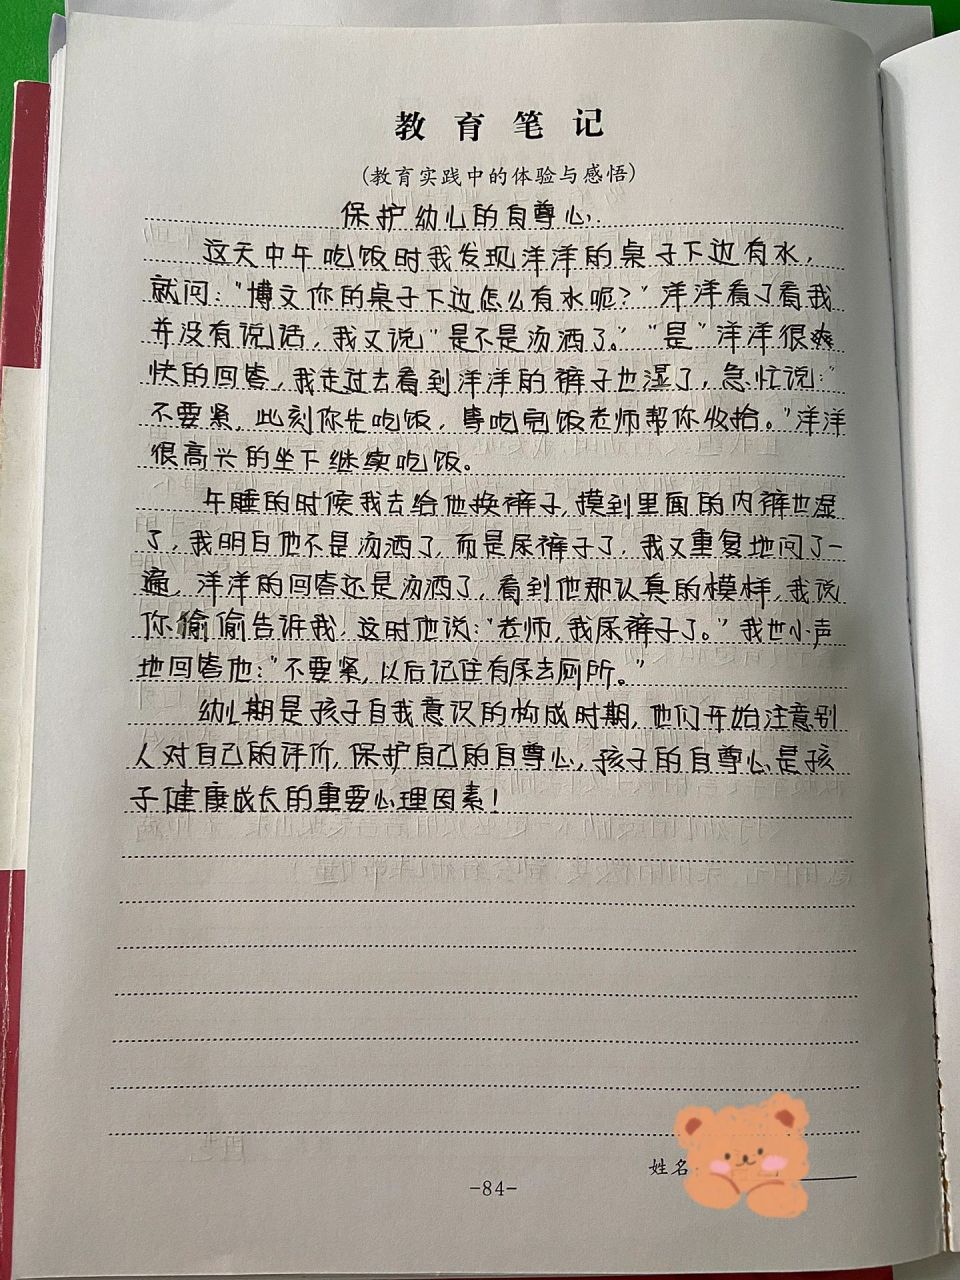 教育笔记
(教育实践中的体验与感悟)
保护幼儿的自尊心.
这天中午吃饭时我发现洋洋的桌子下边有水，
就问:"博文你的桌子下边怎么有水呢?"洋洋看了看我
并没有说话，我又说"是不是汤洒了。""是"洋洋很爽
快的回答,我走过去看到洋洋的裤子也湿了，急忙说:"
不要紧,此刻你先吃饭，等吃完饭老师帮你收拾。"洋洋
很高兴的坐下继续吃饭。
午睡的时候我去给他换裤子,摸到里面的内裤也湿
了,我明白他不是汤洒了,而是尿裤子了,我又重复地问了一
遍,洋洋的回答还是汤洒了,看到他那认真的模样,我说
你偷偷告诉我,这时他说:"老师,我尿裤子了。"我也小声
地回答他:"不要紧,以后记住有尿去厕所。"
幼儿期是孩子自我意识的构成时期,他们开始注意别
人对自己的评价,保护自己的自尊心,孩子的自尊心是孩
子健康成长的重要心理因素!
姓名
-84-